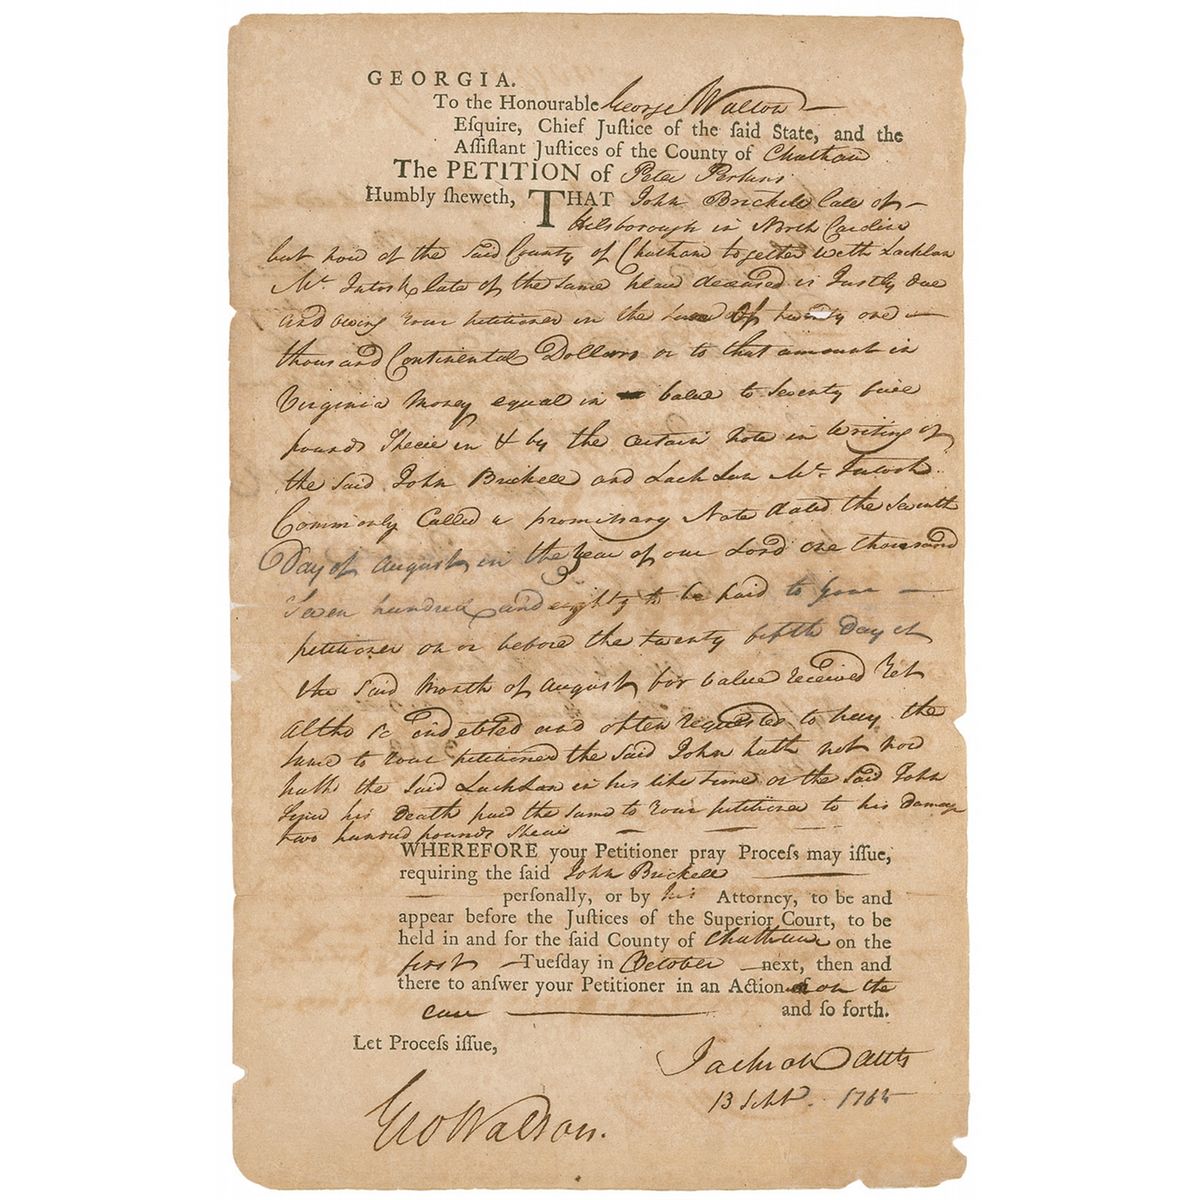 GEORGIA.
To the Honourable George Walton
Eſquire, Chief Juſtice of the ſaid State, and the
Aſſiſtant Juſtices of the County of Chatham
The PETITION of Peter Perkins
Humbly ſheweth, THAT John Brickell late of
Hilsborough in North Carolina
but now of the said County of Chatham together with Lachlan
Mc Intosh late of the same place deceased is Justly due
and owing your petitioner in the sum of twenty one
thousand Continental Dollars or to that amount in
Virginia Money equal in value to seventy five
pounds Specie in & by the certain note in writing of
the said John Brickell and Lachlan Mc Intosh
Commonly Called a promissary Note dated the seventh
Day of August in the year of our Lord one thousand
Seven hundred and eighty to be paid to your
petitioner on or before the twenty fifth Day of
the said Month of August for value received Yet
altho so indebted and often requested to pay the
same to your petitioner the said John hath not nor
hath the said Lachlan in his life time or the said John
since his Death paid the same to your petitioner to his damage
two hundred pounds Specie
WHEREFORE your Petitioner pray Proceſs may iſſue,
requiring the ſaid John Brickell
perſonally, or by his Attorney, to be and
appear before the Juſtices of the Superior Court, to be
held in and for the ſaid County of Chatham on the
first Tueſday in October next, then and
there to anſwer your Petitioner in an Action on the
case and ſo forth.
Let Proceſs iſſue,
Jackson Atts
13 Sept. 178
Geo Walton.